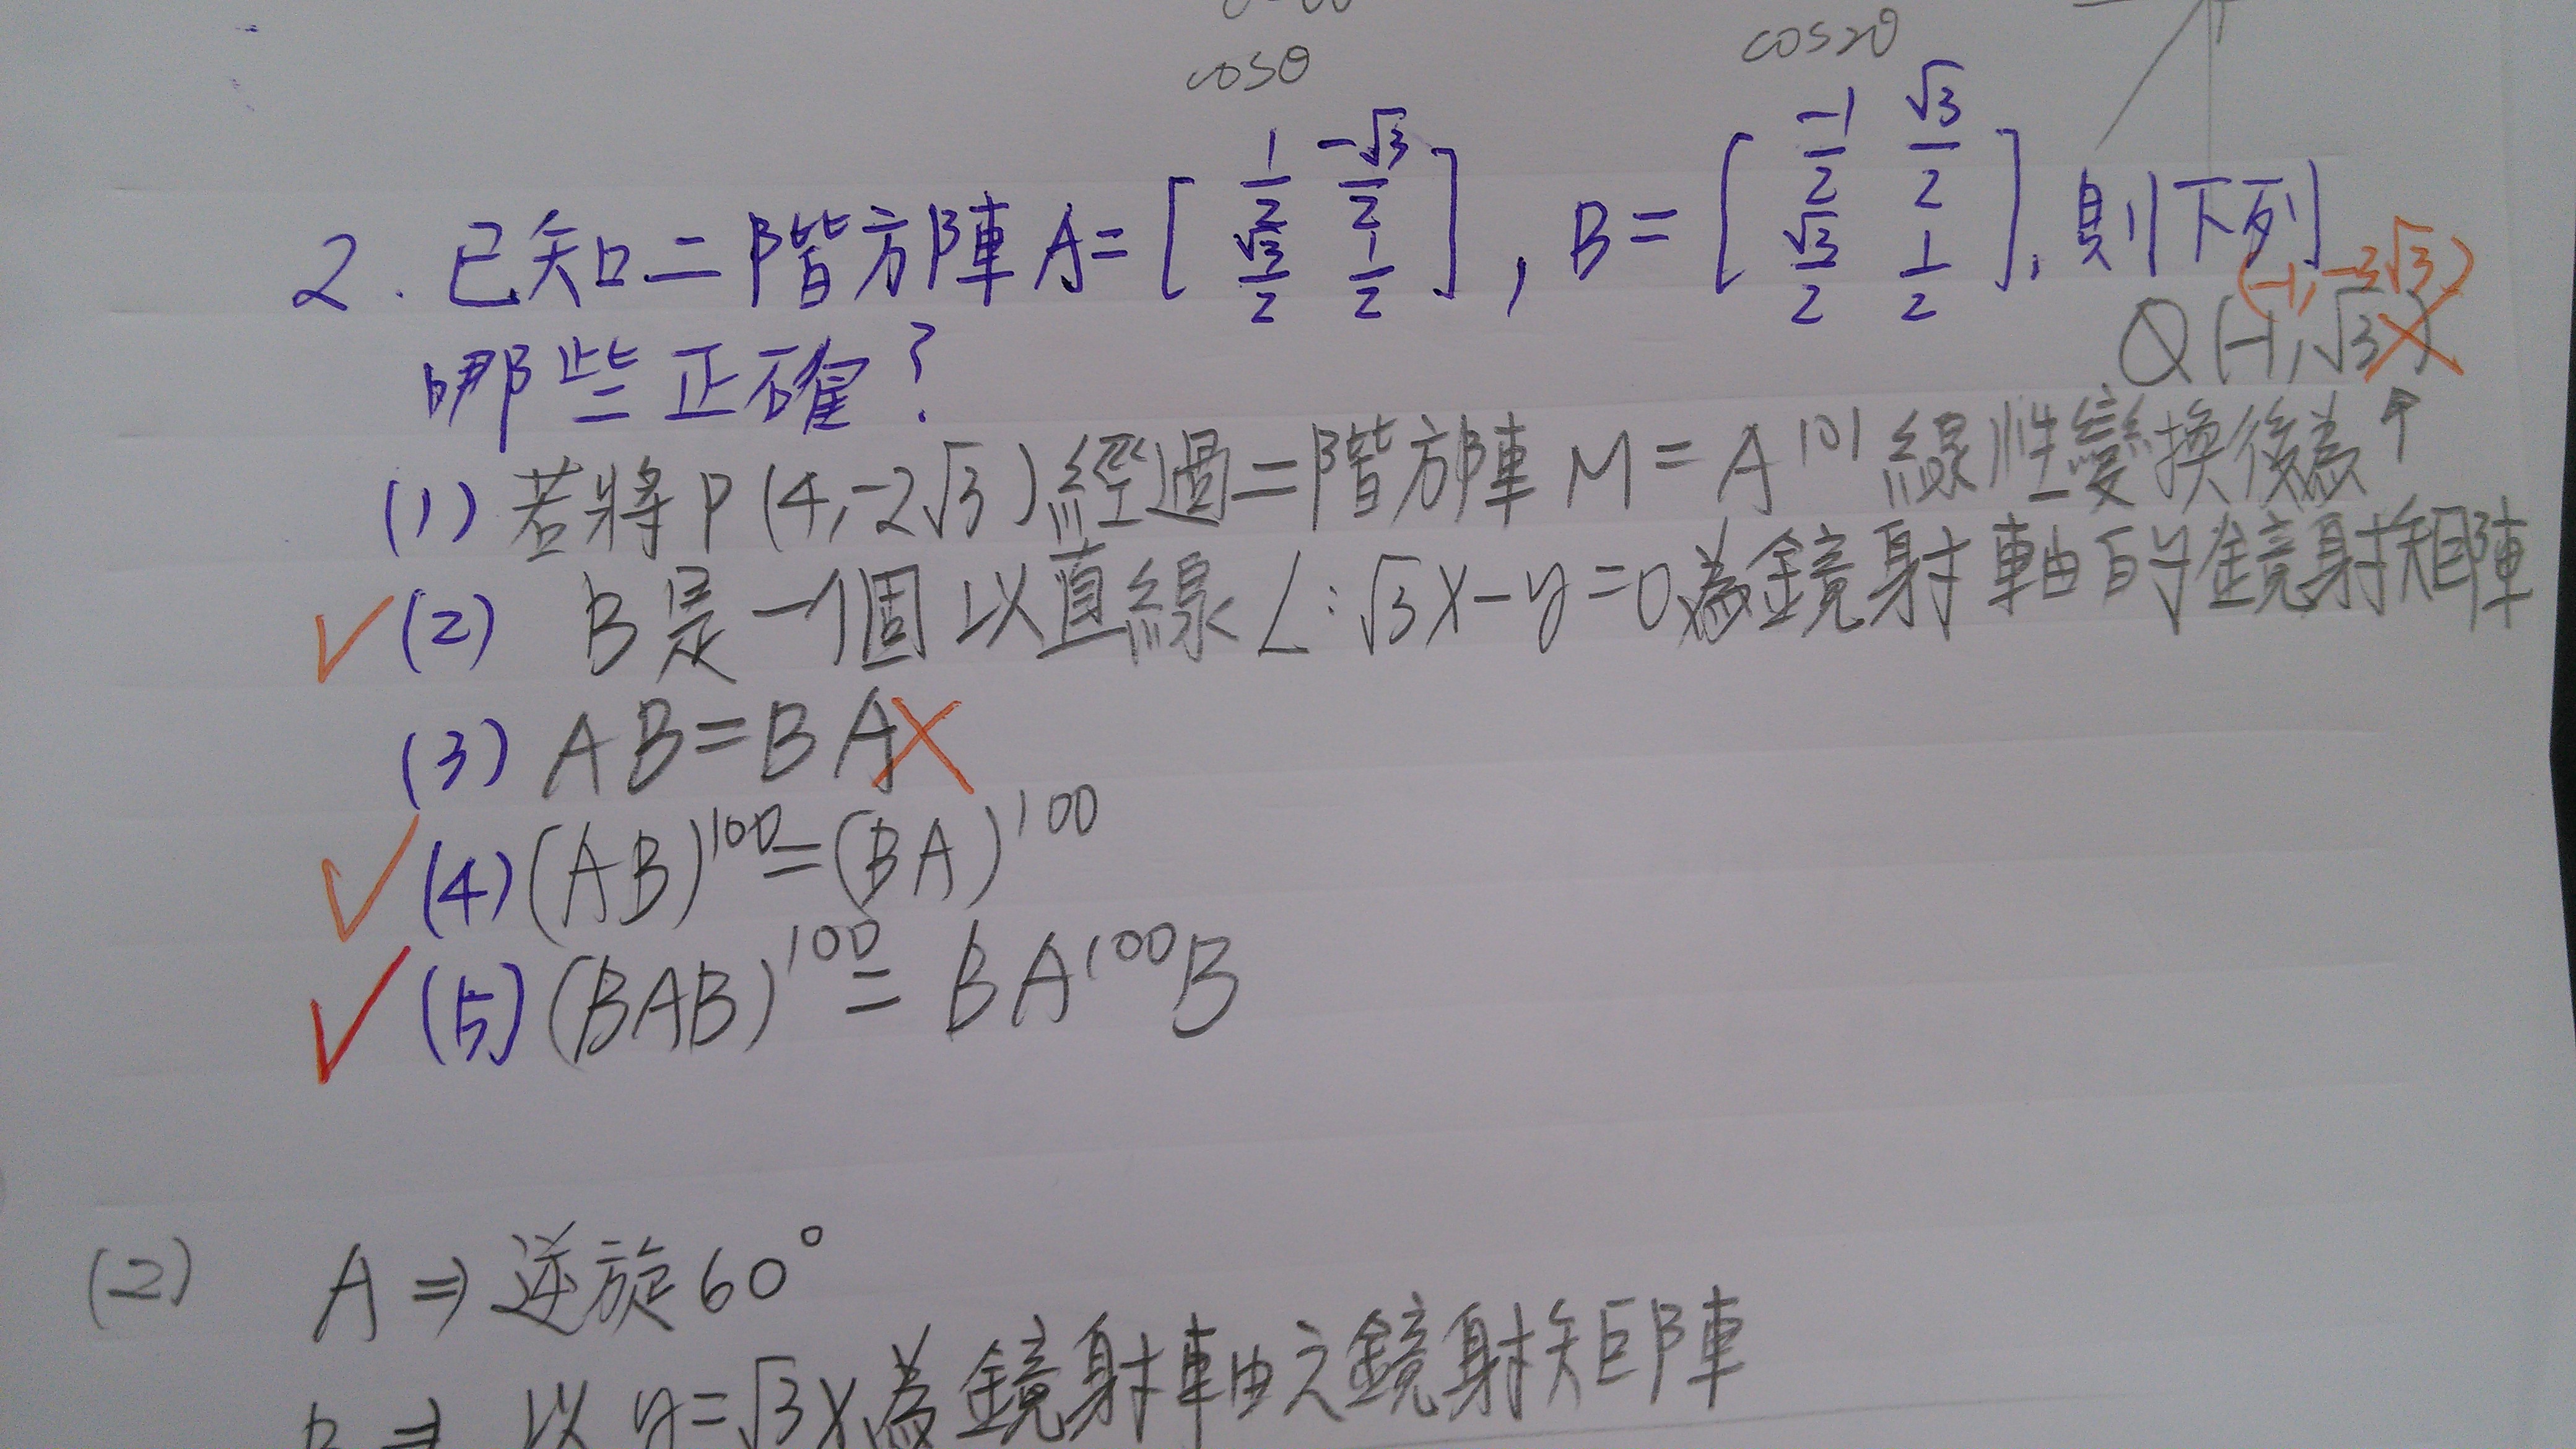 cosθ
cos2θ
2. 已知二階方陣 A=[1/2 -√3/2 √3/2 1/2], B=[-1/2 √3/2 √3/2 1/2], 則下列
哪些正確?
(-1, -3√3)
Q(-1, √3)
(1) 若將P(4,-2√3)經過二階方陣 M=A^101 線性變換後為↑
✓(2) B是一個以直線 L:√3x-y=0為鏡射軸的鏡射矩陣
(3) AB=BA X
✓(4) (AB)^100=(BA)^100
✓(5) (BAB)^100=BA^100B
(2) A ⇒ 逆旋60°
B ⇒ 以 y=√3x為鏡射軸之鏡射矩陣